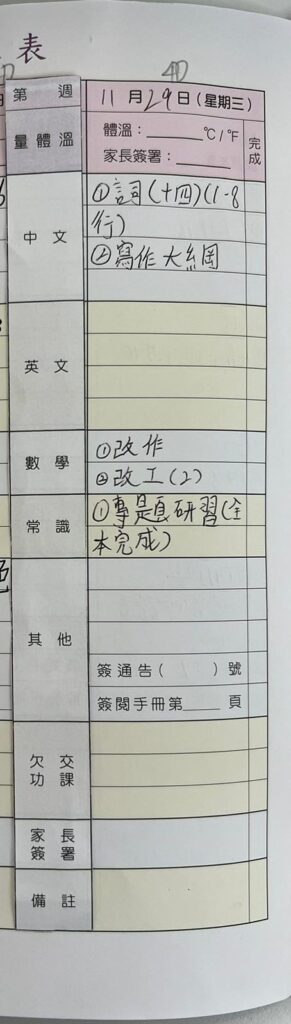 表
4D
第 週
11月29日(星期三)
量體溫
體溫：______℃/℉
家長簽署：______
完成
中文
①詞(十四)(1-8
行)
②寫作大綱
英文
數學
①改作
②改工(2)
常識
①專題研習(全
本完成)
其他
簽通告( )號
簽閱手冊第____頁
欠交
功課
家長
簽署
備註